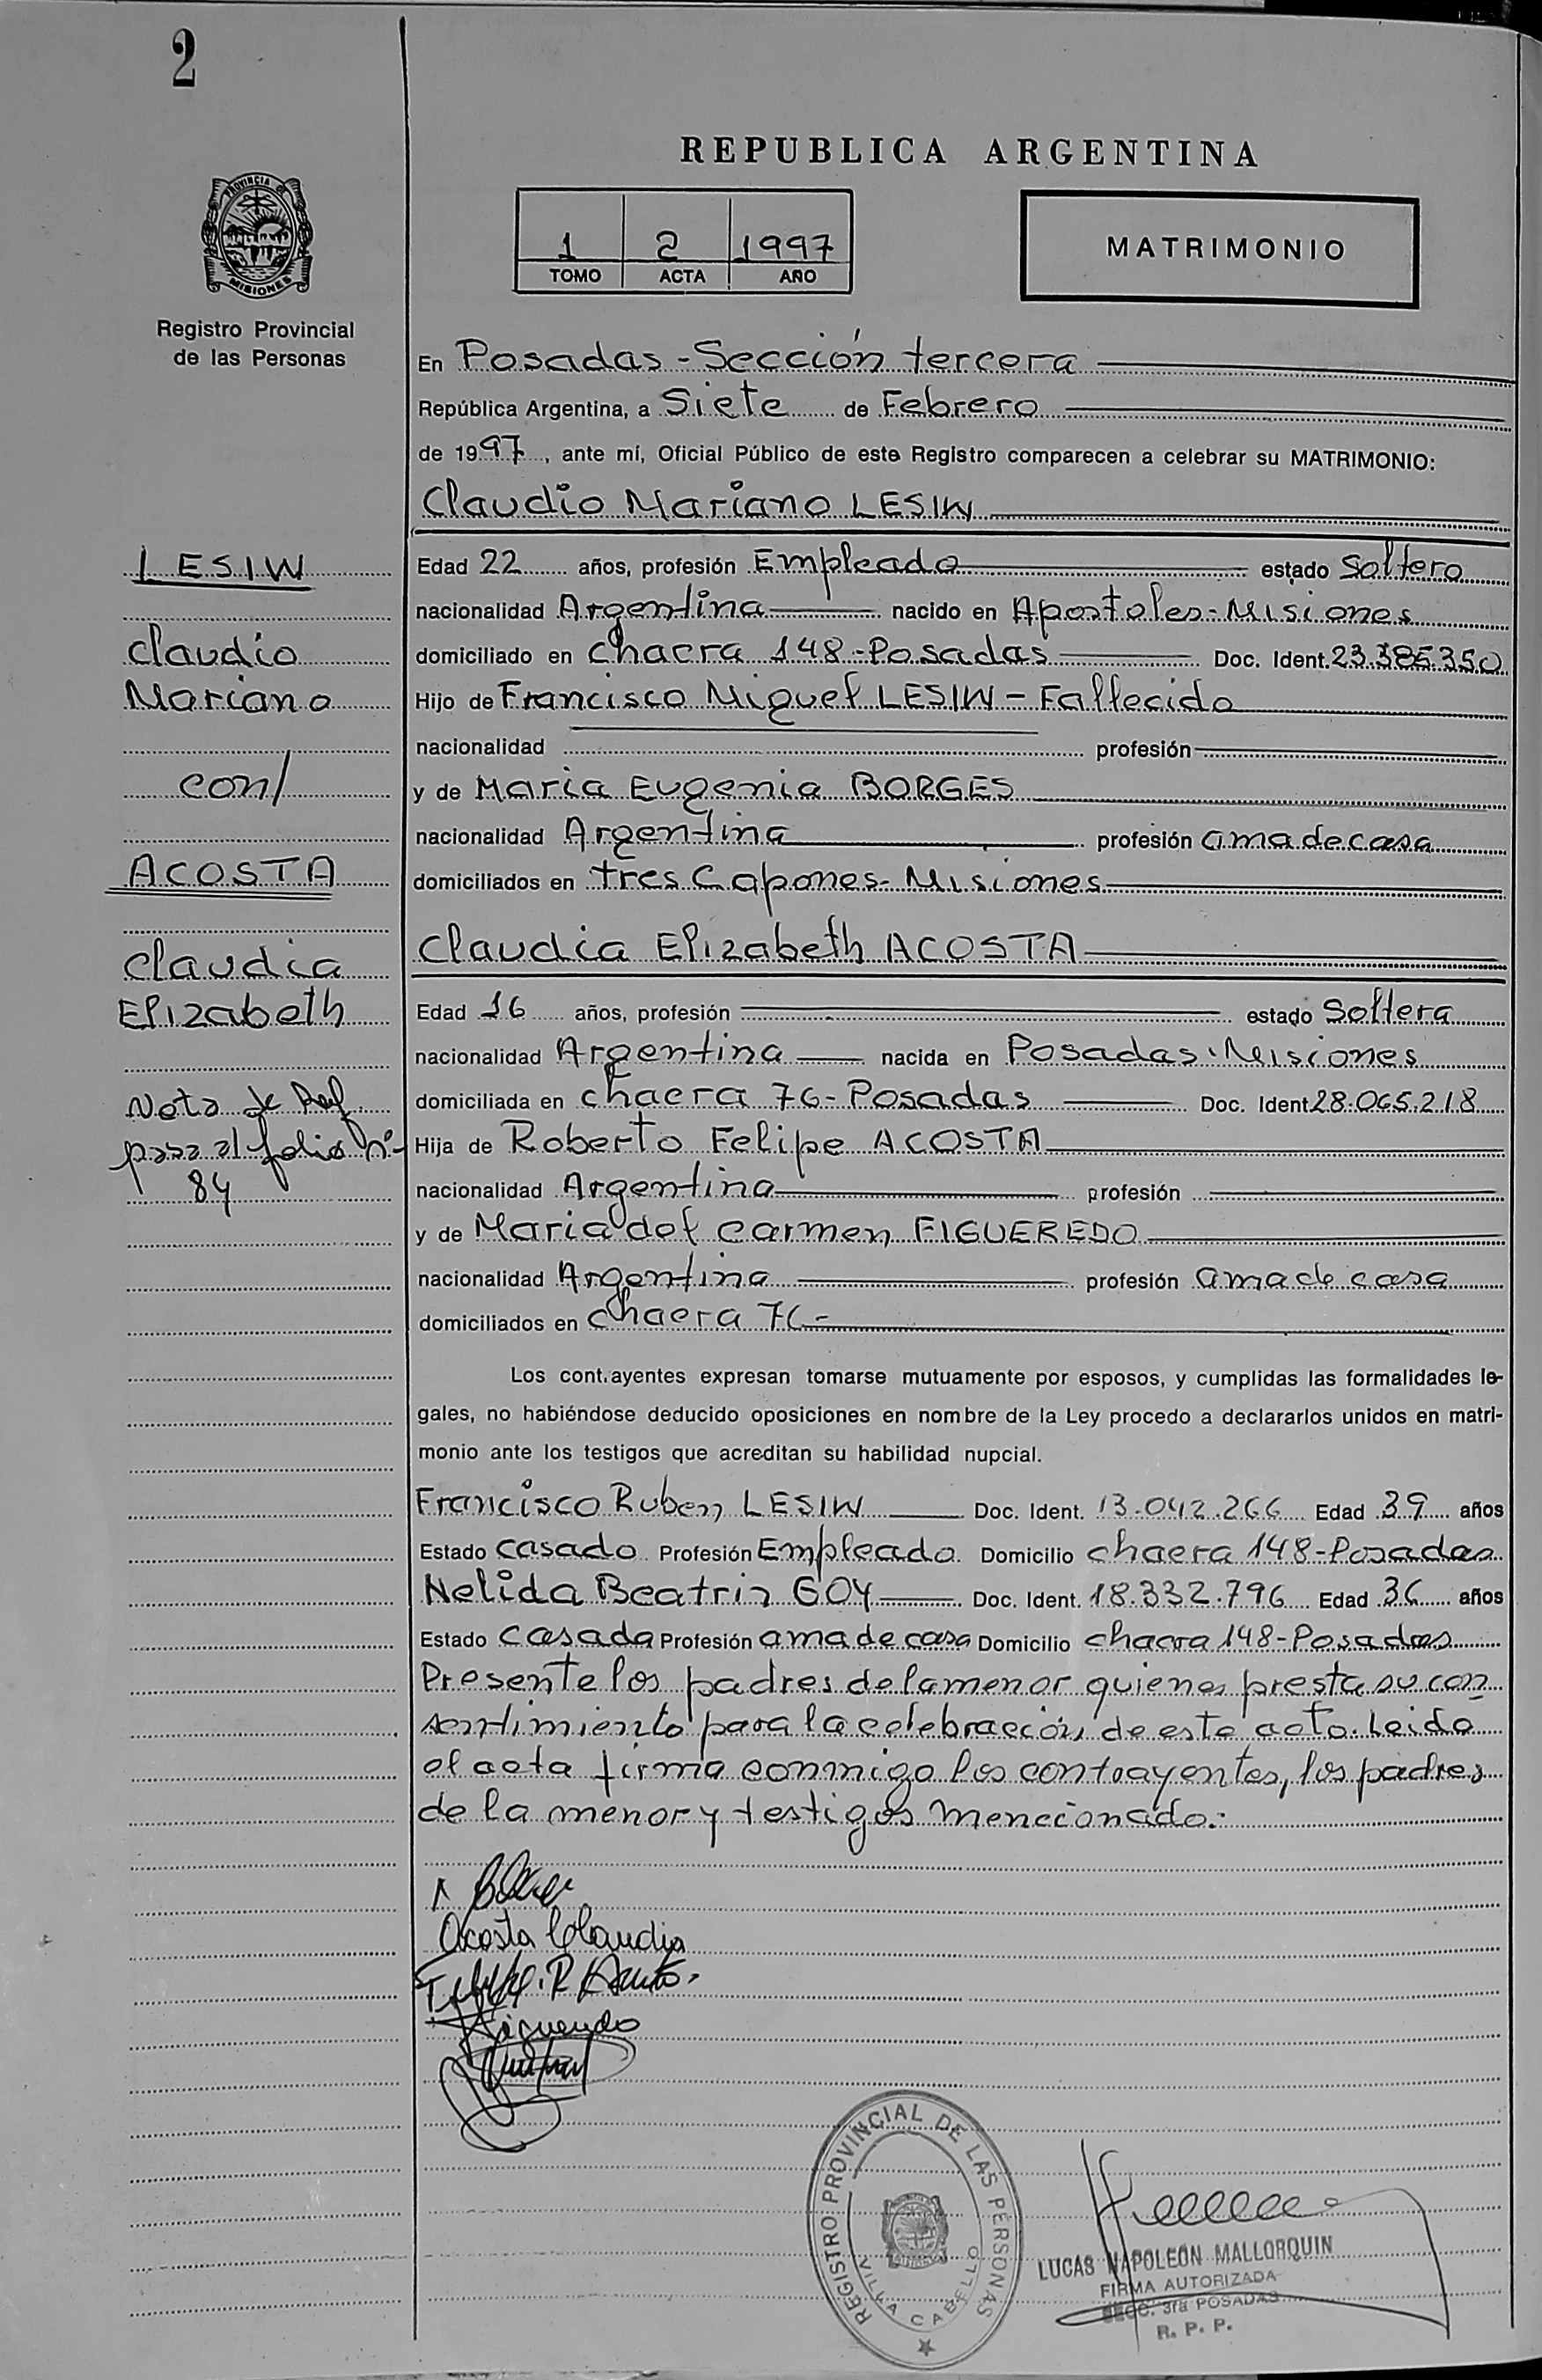 2
REPUBLICA ARGENTINA
PROVINCIA DE
MISIONES
Registro Provincial
de las Personas
1 2 1997
TOMO ACTA AÑO
MATRIMONIO
En Posadas - Sección tercera
República Argentina, a Siete de Febrero
de 1997, ante mí, Oficial Público de este Registro comparecen a celebrar su MATRIMONIO:
Claudio Mariano LESIW
LESIW
Claudio
Mariano
con/
ACOSTA
Claudia
Elizabeth
Nota de Ref.
pasa al folio nº
84
Edad 22 años, profesión Empleado estado Soltero
nacionalidad Argentina nacido en Apostoles - Misiones
domiciliado en chacra 148 - Posadas Doc. Ident. 23.385.350
Hijo de Francisco Miguel LESIW - Fallecido
nacionalidad profesión
y de Maria Eugenia BORGES
nacionalidad Argentina profesión ama de casa
domiciliados en tres Capones - Misiones
Claudia Elizabeth ACOSTA
Edad 16 años, profesión estado Soltera
nacionalidad Argentina nacida en Posadas - Misiones
domiciliada en chacra 76 - Posadas Doc. Ident 28.065.218
Hija de Roberto Felipe ACOSTA
nacionalidad Argentina profesión
y de Maria del Carmen FIGUEREDO
nacionalidad Argentina profesión ama de casa
domiciliados en chacra 76 -
Los cont.ayentes expresan tomarse mutuamente por esposos, y cumplidas las formalidades le-
gales, no habiéndose deducido oposiciones en nombre de la Ley procedo a declararlos unidos en matri-
monio ante los testigos que acreditan su habilidad nupcial.
Francisco Ruben LESIW Doc. Ident. 13.042.266 Edad 39 años
Estado casado Profesión Empleado Domicilio chacra 148 - Posadas
Nelida Beatriz GOY Doc. Ident. 18.332.796 Edad 36 años
Estado casada Profesión ama de casa Domicilio chacra 148 - Posadas
Presente los padres de la menor quienes presta su con
sentimiento para la celebración de este acto. Leida
el acta firma conmigo los contrayentes, los padres
de la menor y testigos mencionado.-
Acosta Claudia
Figueredo
REGISTRO PROVINCIAL DE LAS PERSONAS
VILLA CABELLO
LUCAS NAPOLEON MALLORQUIN
FIRMA AUTORIZADA
SECC. 3ra POSADAS
R. P. P.